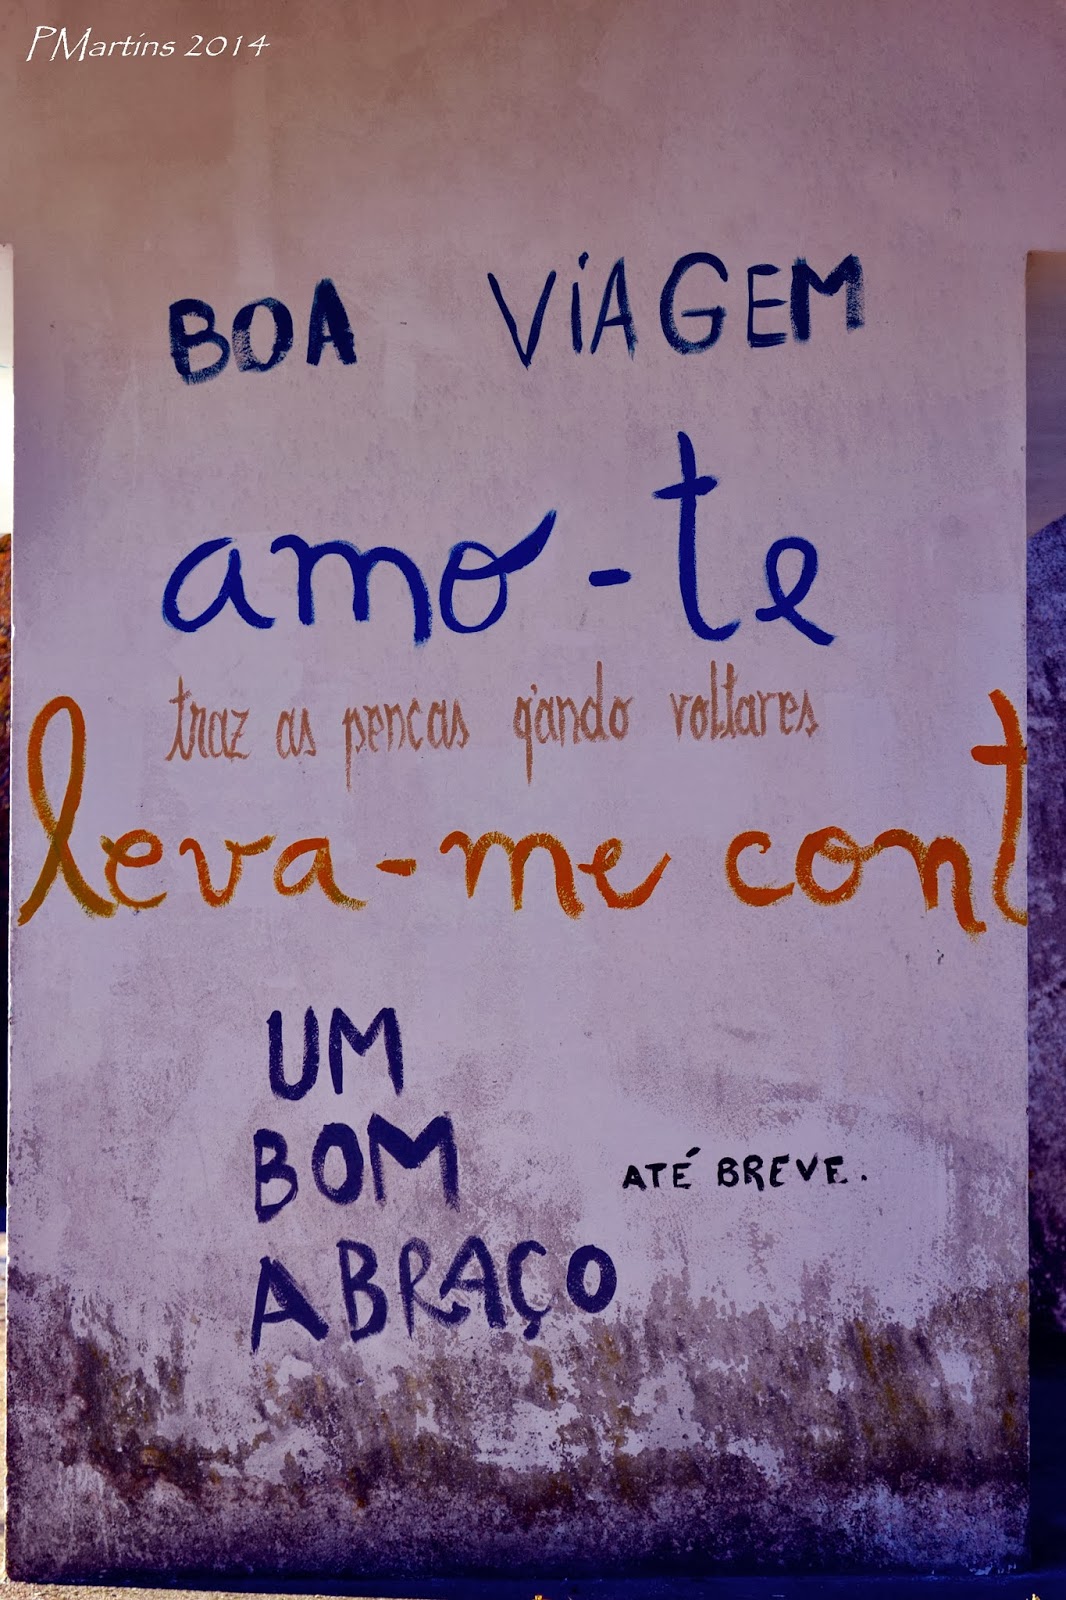 PMartins 2014
BOA VIAGEM
amo-te
traz as pencas q'ando voltares
leva-me cont
UM
BOM
ABRAÇO
ATÉ BREVE.